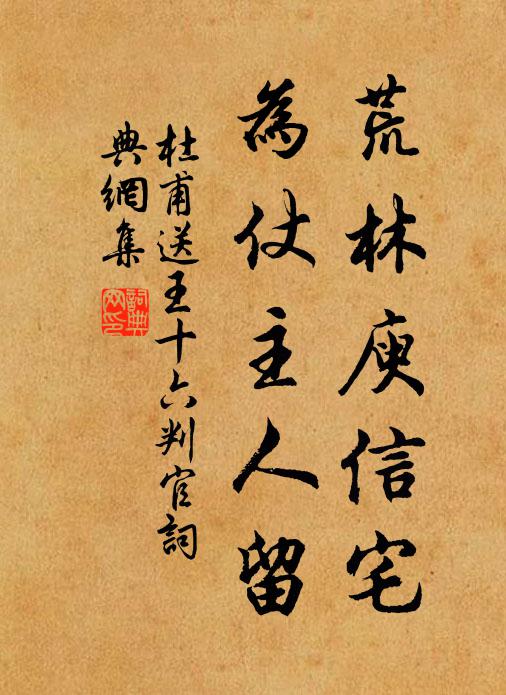 荒林庾信宅
為仗主人留
杜甫送王十六判官詞
典網集
詞典網印